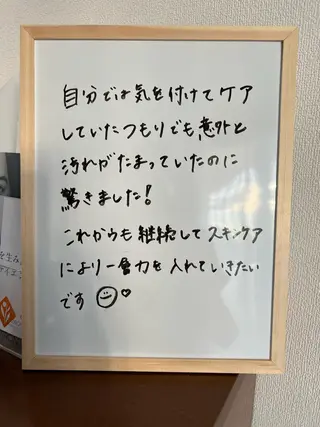 自分では気を付けてケア
していたつもりでも、意外と
汚れがたまっていたのに
驚きました!
これからも継続してスキンケア
により一層力を入れていきたい
です